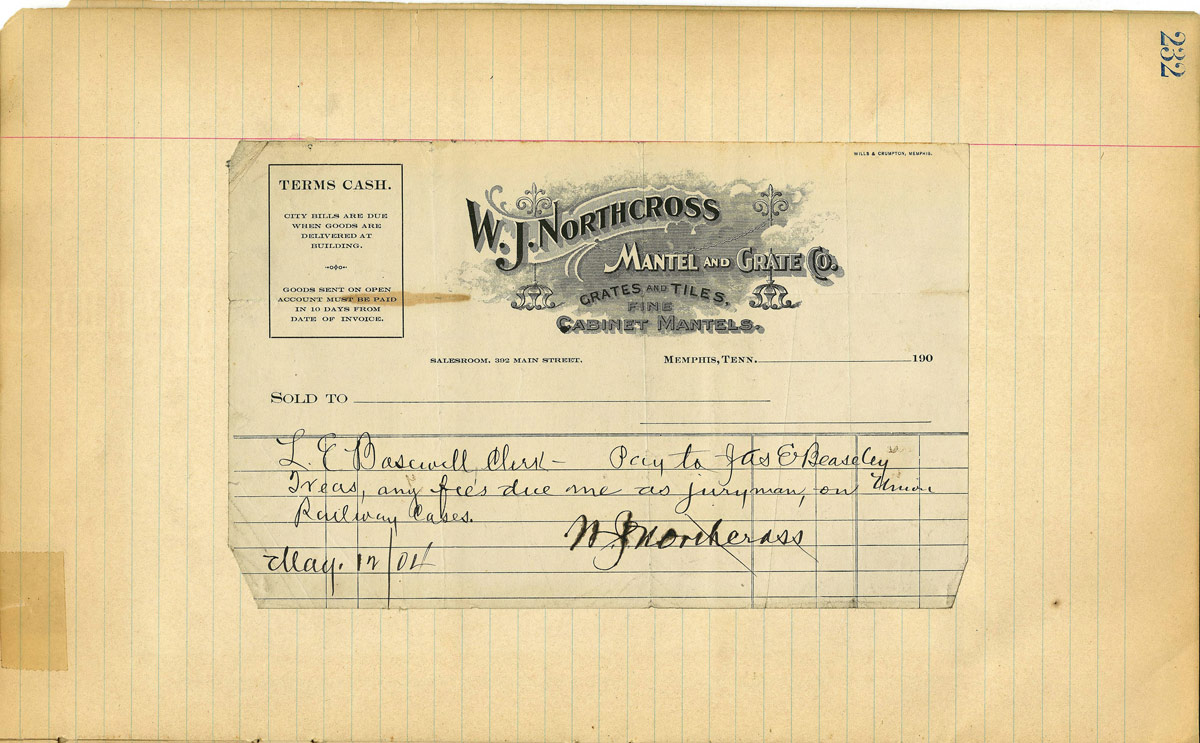 232
WILLS & CRUMPTON, MEMPHIS.
TERMS CASH.
CITY BILLS ARE DUE
WHEN GOODS ARE
DELIVERED AT
BUILDING.
GOODS SENT ON OPEN
ACCOUNT MUST BE PAID
IN 10 DAYS FROM
DATE OF INVOICE.
W. J. NORTHCROSS
MANTEL AND GRATE CO.
GRATES AND TILES,
FINE
CABINET MANTELS.
SALESROOM, 392 MAIN STREET.
MEMPHIS, TENN. 190
SOLD TO
L. E. Clerk — Pay to Jas E Beaseley
Treas, any fees due me as juryman, on Union
Railway Cases.
W. J. Northcross
May. 12/04